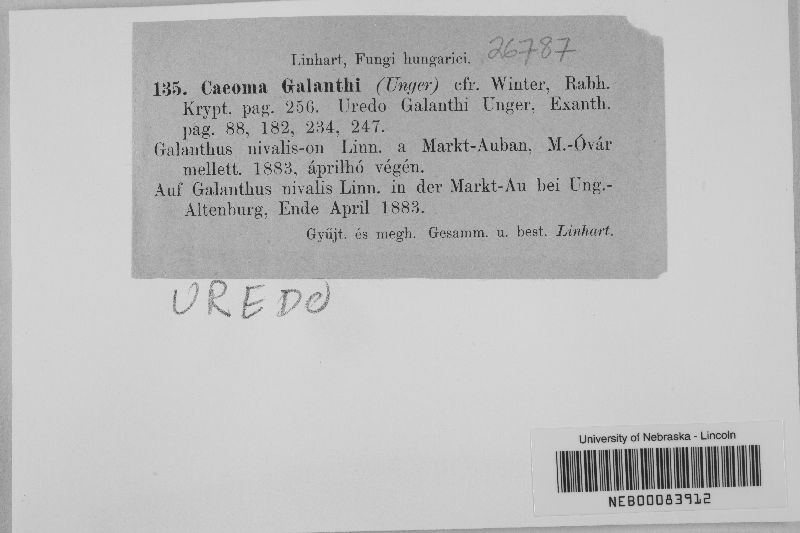 Linhart, Fungi hungarici. 26787
135. Caeoma Galanthi (Unger) cfr. Winter, Rabh.
Krypt. pag. 256. Uredo Galanthi Unger, Exanth.
pag. 88, 182, 234, 247.
Galanthus nivalis-on Linn. a Markt-Auban, M.-Óvár
mellett. 1883, áprilhó végén.
Auf Galanthus nivalis Linn. in der Markt-Au bei Ung.-
Altenburg, Ende April 1883.
Gyűjt. és megh. Gesamm. u. best. Linhart.
UREDO
University of Nebraska - Lincoln
NEB00083912